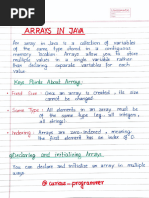 ARRAYS IN JAVA
An array in Java is a collection of variables
of the same type stored in a contiguous
memory location. Arrays allow you to store
multiple values in a single variable rather
than declaring separate variables for each
value.
Key Points About Arrays:
Fixed Size : Once an array is created, its size
cannot be changed.
Same Type : All elements in an array must be
of the same type (eg. all integers,
all strings).
Indexing : Arrays are zero-indexed, meaning
the first element has an index of 0
Declaring and Initializing Arrays
You can declare and initialize an array in multiple
ways
curious_programmer